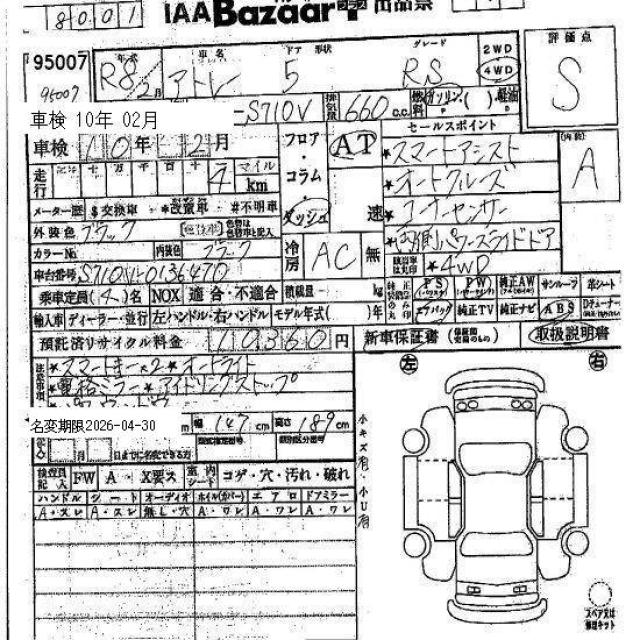 8001 IAA Bazaar 出品票
95007 年式 車名 ドア 形状 グレード 2WD 評価点
R8/2月 アトレー 5 RS 4WD S
95007
S710V 排気量 660 c.c. 燃料 ガソリン・( )・軽油
車検 10年 02月
セールスポイント
車検 10年 2月 フロア・コラム・ダッシュ AT 速 A
*スマートアシスト
走行 4 マイル km
*オートクルーズ
メーター歴 $交換車・*改竄車・#不明車
*コーナーセンサー
外装色 ブラック
*両側パワースライドドア
カラーNo. 内装色 ブラック 冷房 AC 無
*4WD
車台番号 S710V-0136470
乗車定員(4)名 NOX 適合・不適合 積載量 kg PS PW 純正AW サンルーフ 革シート
輸入車 ディーラー・並行 左ハンドル・右ハンドル モデル年式( )年 エアバック 純正TV 純正ナビ ABS
預託済リサイクル料金 10360円 新車保証書 取扱説明書
*スマートキー*2*オートライト
*電格ミラー*アイドリングストップ
左 右
名変期限2026-04-30 m 幅 147cm 高さ 189cm
小キズ有・小U有
検査員記入 FW A・X要ス 室内シート コゲ・穴・汚れ・破れ
ハンドル シート オーディオ ホイル(カバー) エアロ ドアミラー
A・スレ A・スレ 無し・穴 A・ワレ A・ワレ A・ワレ
スペア又は修理キット